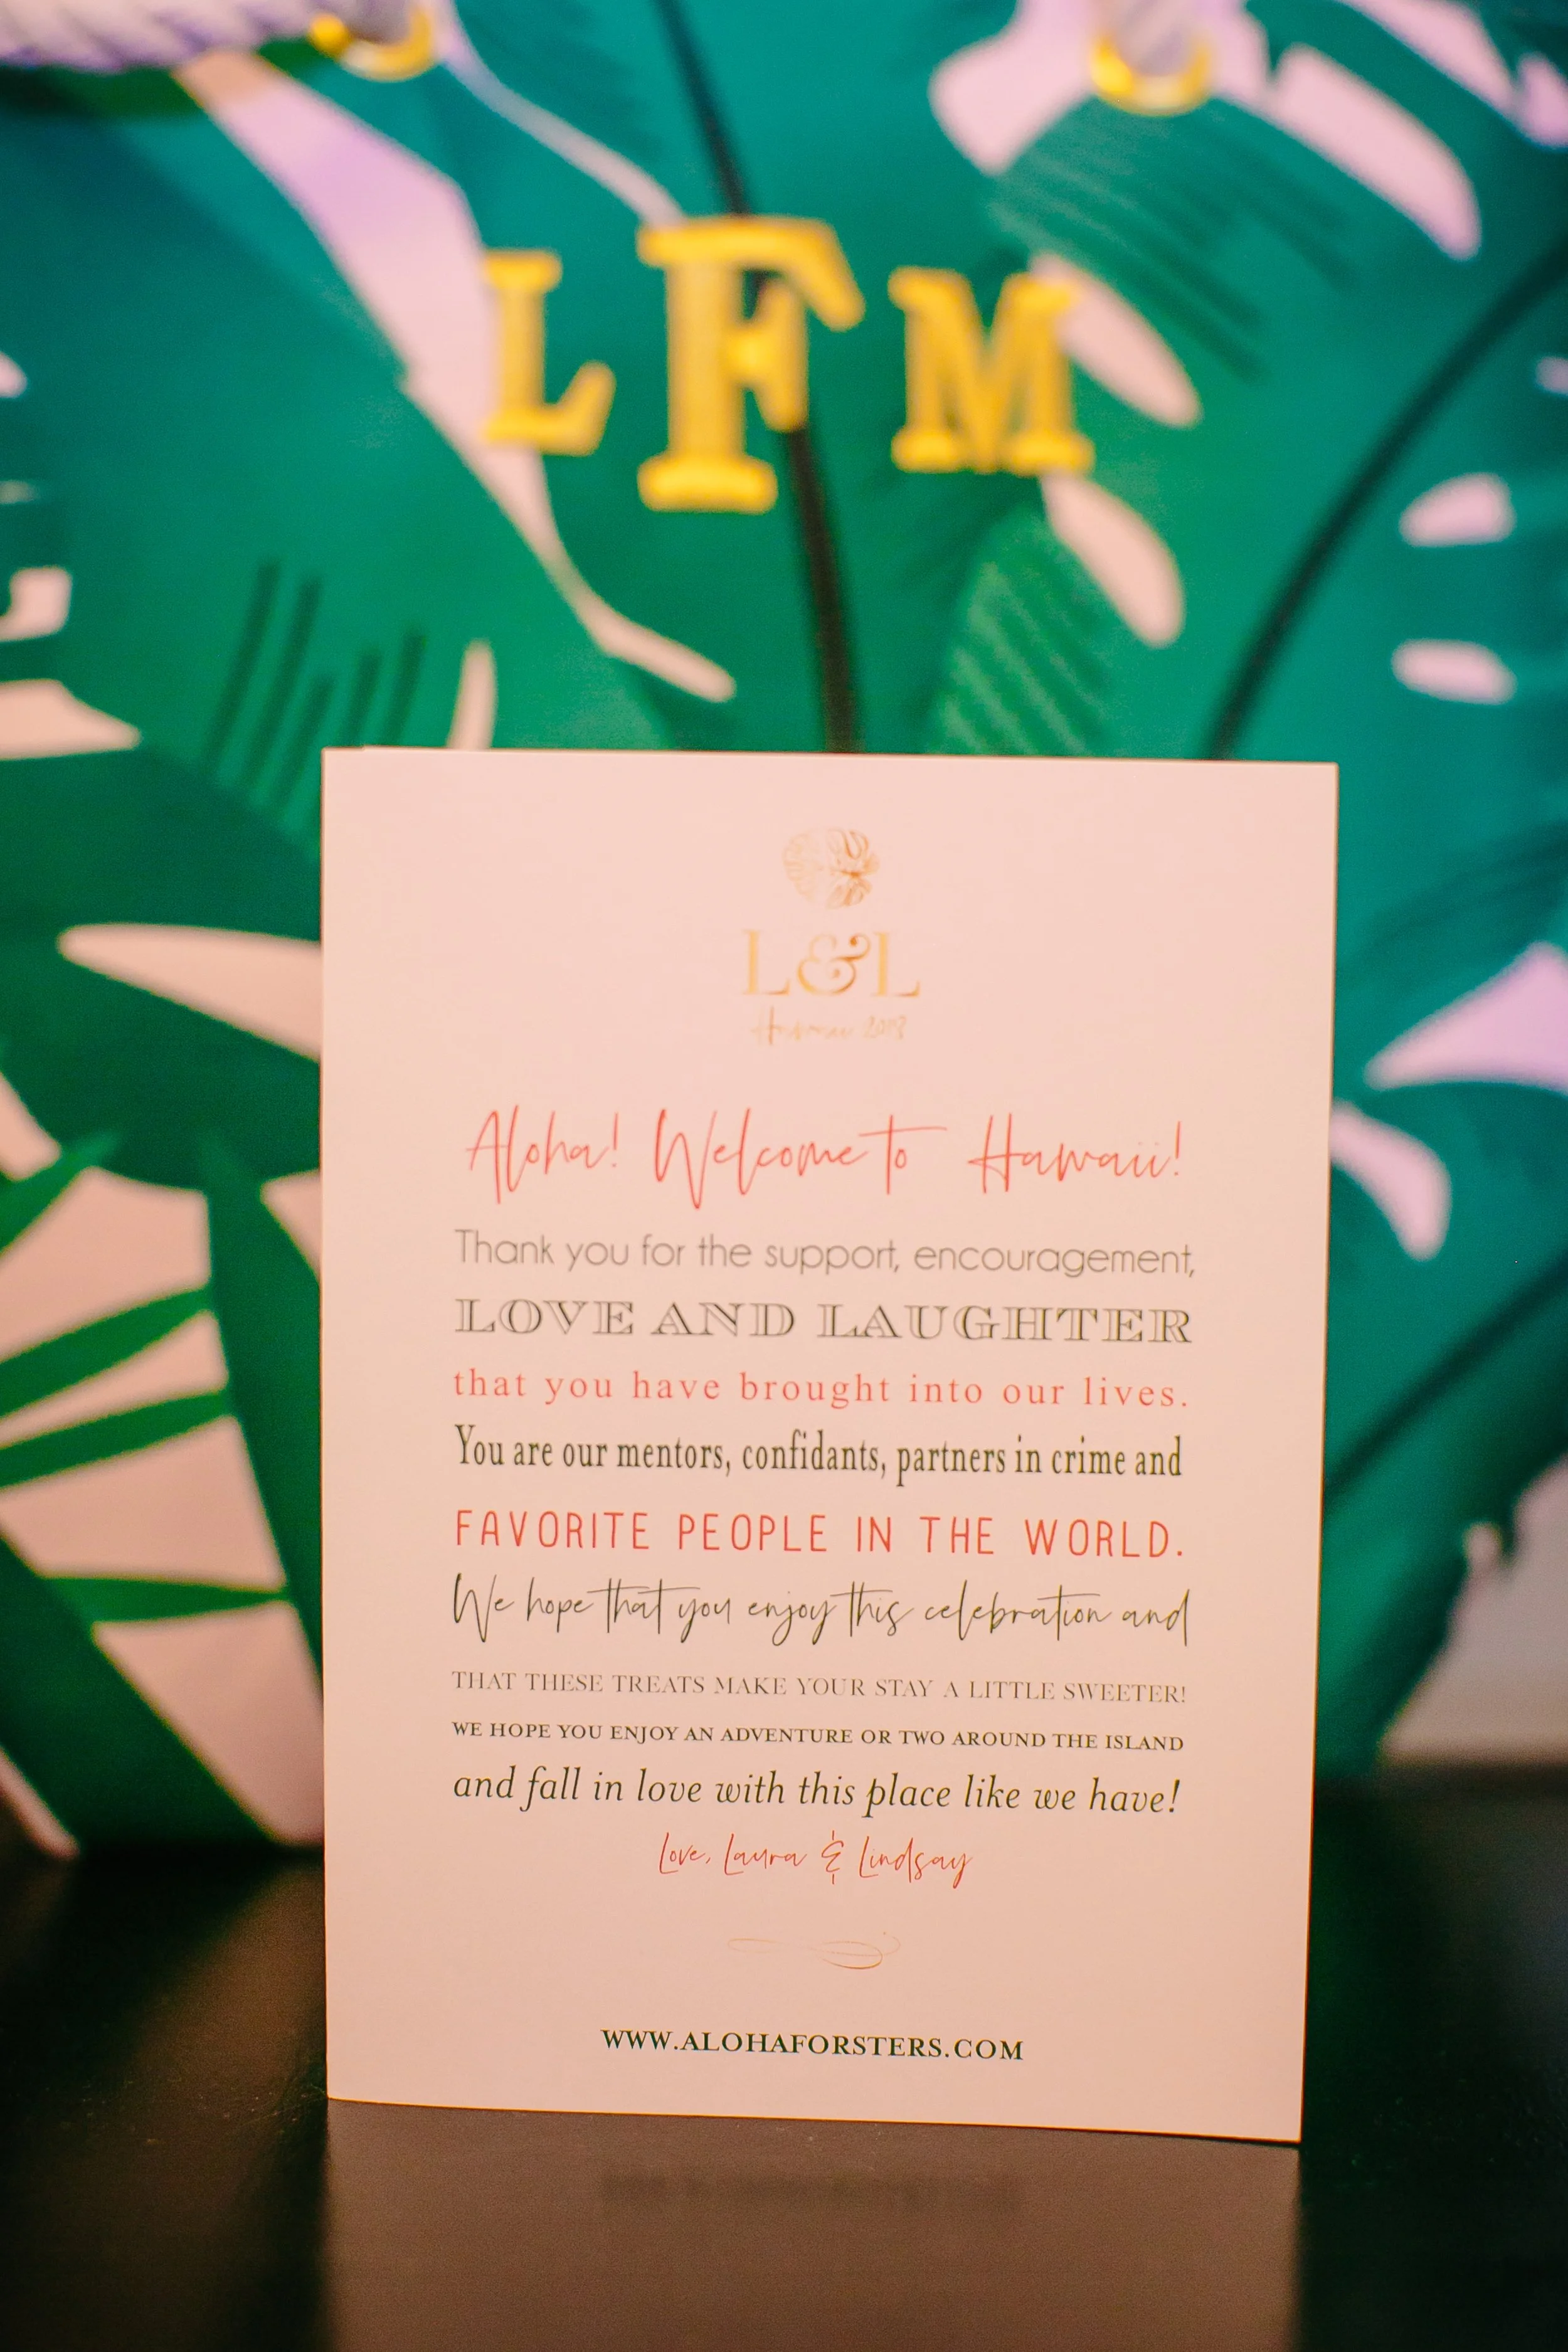 L F M
L&L
Hawaii 2018
Aloha! Welcome to Hawaii!
Thank you for the support, encouragement,
LOVE AND LAUGHTER
that you have brought into our lives.
You are our mentors, confidants, partners in crime and
FAVORITE PEOPLE IN THE WORLD.
We hope that you enjoy this celebration and
THAT THESE TREATS MAKE YOUR STAY A LITTLE SWEETER!
WE HOPE YOU ENJOY AN ADVENTURE OR TWO AROUND THE ISLAND
and fall in love with this place like we have!
Love, Laura & Lindsay
WWW.ALOHAFORSTERS.COM